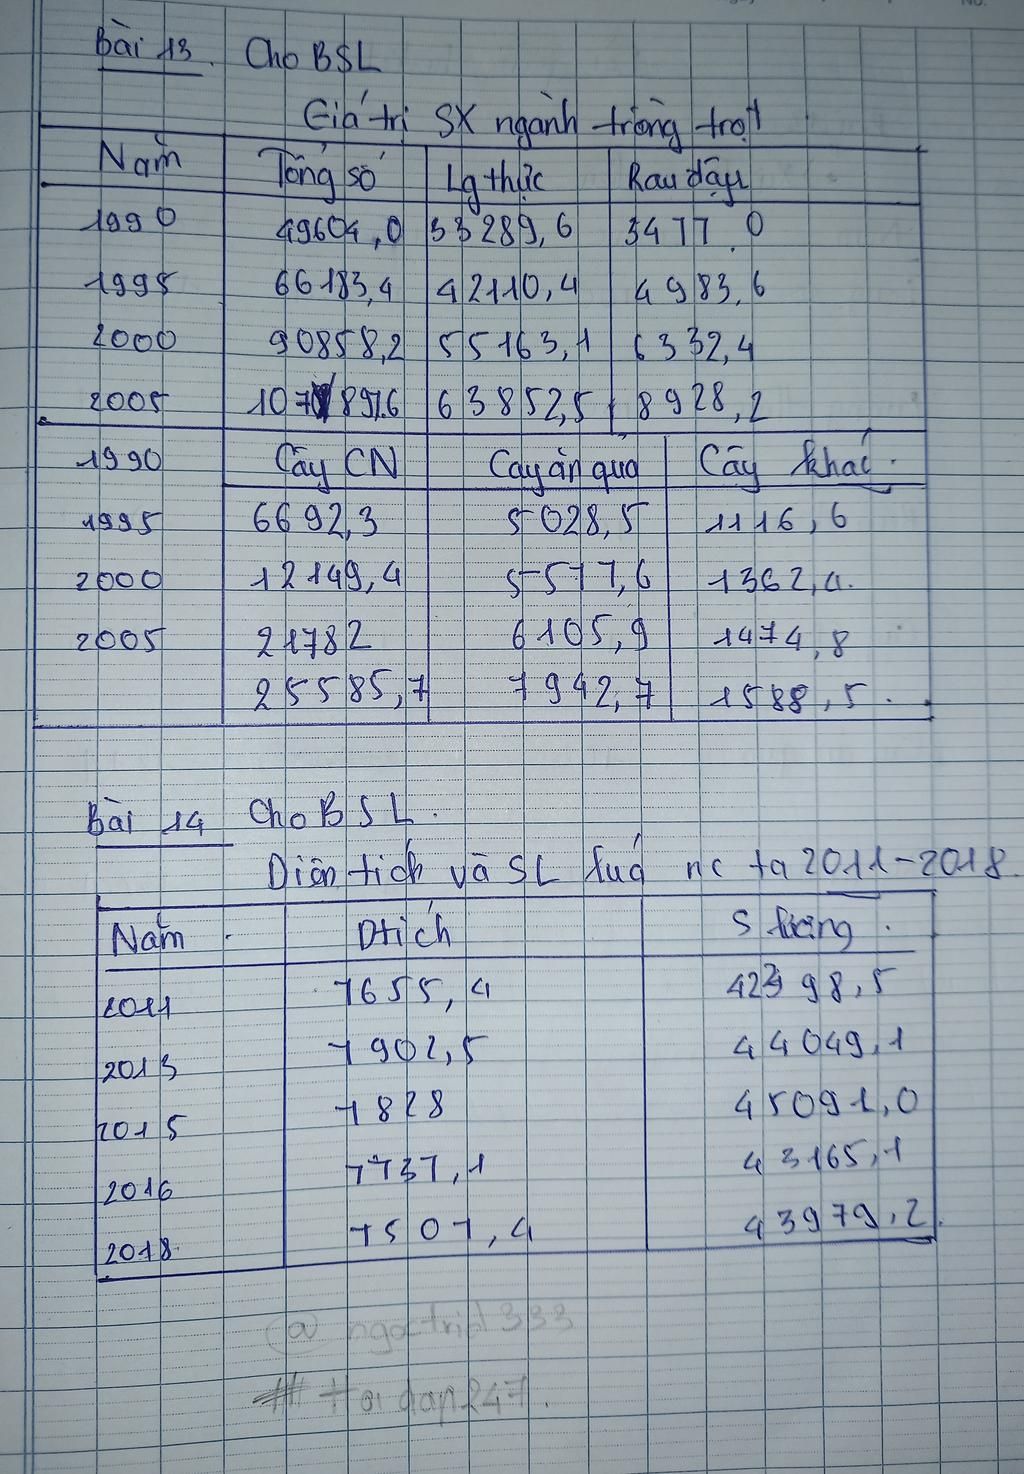 Bài 13. Cho BSL
Giá trị SX ngành trồng trọt
Năm Tổng số Lg thực Rau đậu
1990 49604,0 33289,6 3477,0
1995 66183,4 42110,4 4983,6
2000 90858,2 55163,1 6332,4
2005 107897,6 63852,5 8928,2
1990 Cây CN Cây ăn quả Cây khác.
1995 6692,3 5028,5 1116,6
2000 12149,4 5577,6 1362,4.
2005 21782 6105,9 1474,8
25585,7 7942,7 1588,5.
Bài 14 Cho BSL.
Diện tích và SL lúa nc ta 2011-2018.
Năm Dtích S lượng.
2011 7655,4 42398,5
2013 7902,5 44049,1
2015 7828 45091,0
2016 7737,1 43165,1
2018. 7507,4 43979,2.
@ngoctrid333
# Hoidap247.